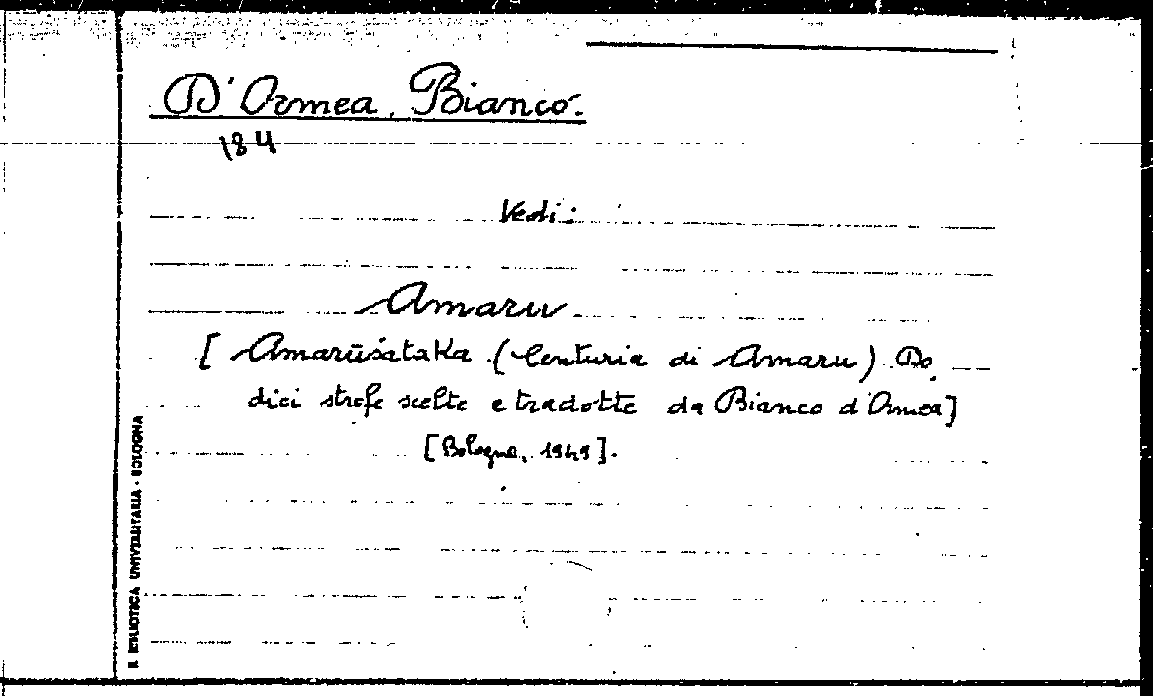 D'Ormea, Bianco.
184
Vedi:
Amaru
[Amarūśataka (Centuria di Amaru) Do,
dici strofe scelte e tradotte da Bianco d'Ormea]
[Bologna, 1949].
R. BIBLIOTECA UNIVERSITARIA - BOLOGNA